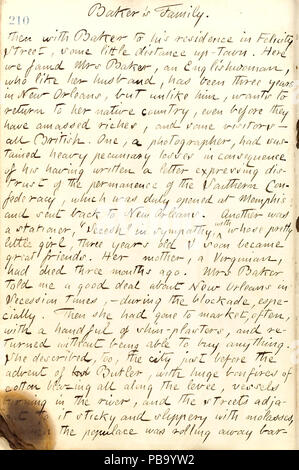 210
Baker's Family.
then with Baker to his residence in Felicity
Street, some little distance up-town. Here
we found Mrs Baker, an Englishwoman,
who like her husband, has been three years
in New Orleans, but unlike him, wants to
return to her native country, even before they
have amassed riches, and some visitors—
all British. One, a photographer, had sus-
tained heavy pecuniary losses in consequence
of his having written a letter expressing dis-
trust of the permanence of the Southern Con-
federacy, which was duly opened at Memphis
and sent back to New Orleans. Another was
a stationer, "Secesh" in sympathy, with whose pretty
little girl, three years old I soon became
great friends. Her mother, a Virginian,
had died three months ago. Mrs Baker
told me a good deal about New Orleans in
Secession times,—during the blockade, espe-
cially. Then she had gone to market, often,
with a handful of shin-plasters, and re-
turned without being able to buy anything.
She described, too, the city just before the
advent of Butler, with huge bonfires of
cotton blazing all along the levee, vessels
burning in the river, and the streets adja-
it sticky and slippery with molasses,
the populace was rolling away bar-
alamy
Image ID: PB9YW2
www.alamy.com